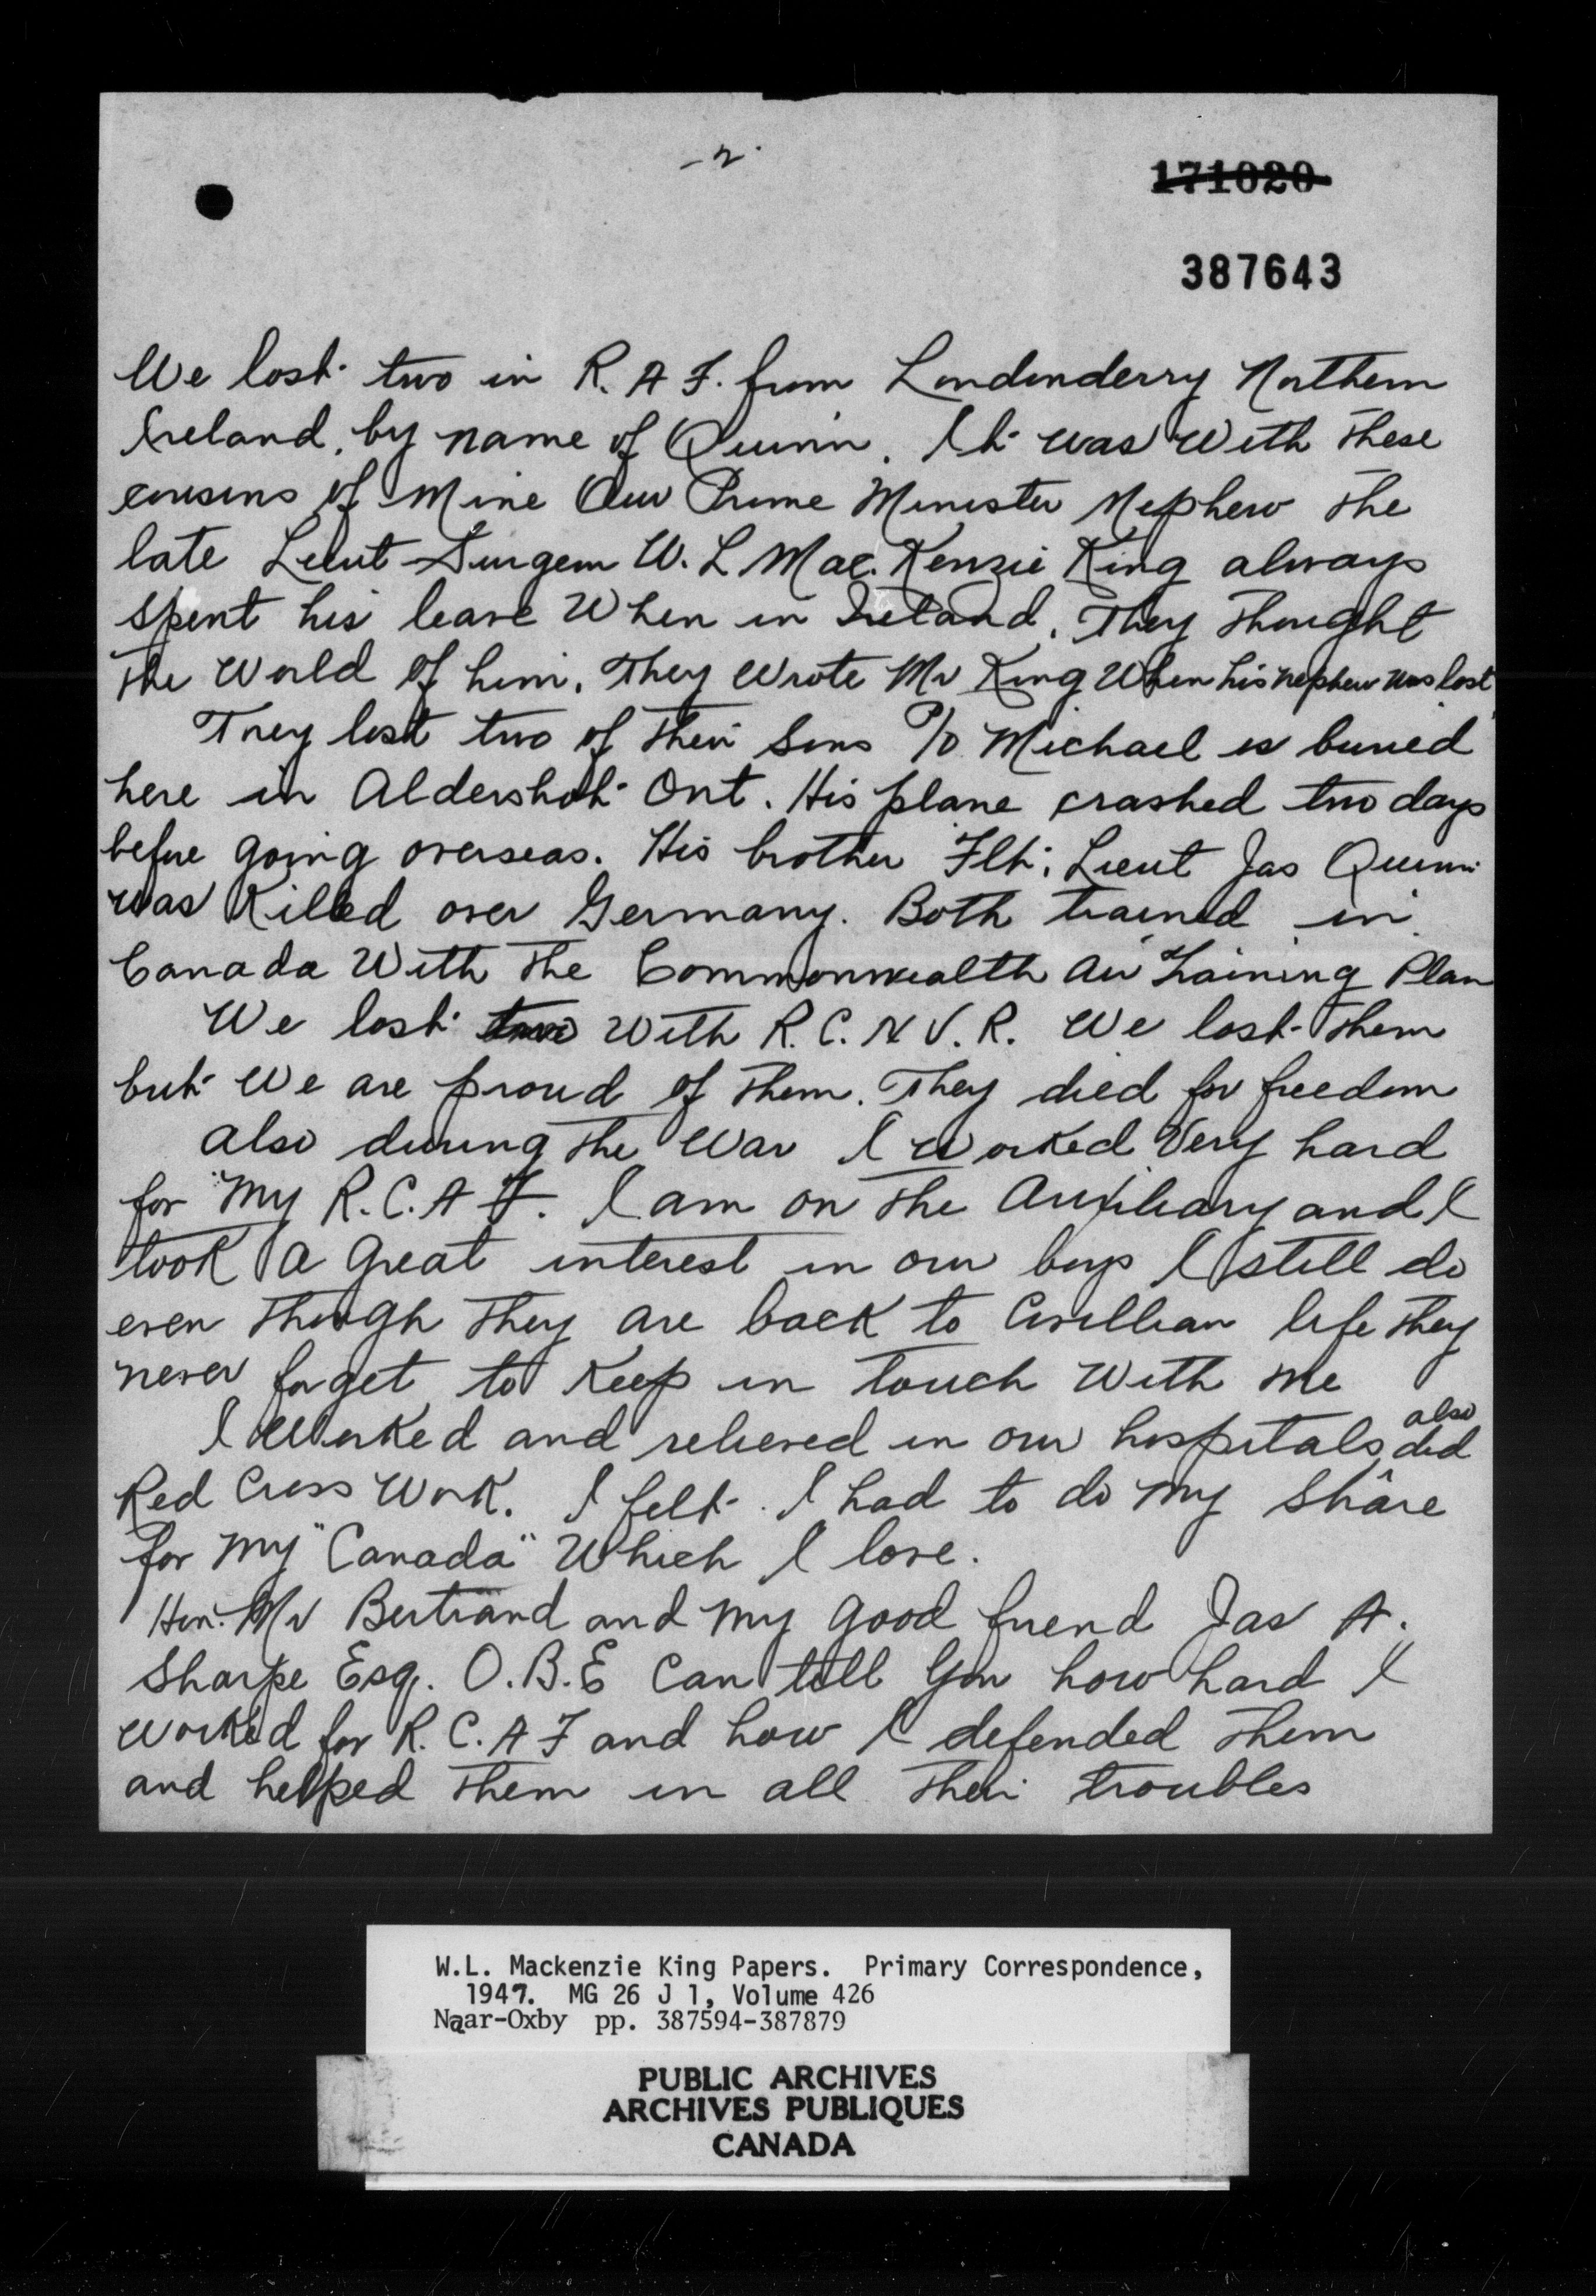 -2-
171020
387643
We lost two in R.A.F. from Londonderry Northern
Ireland, by name of Quinn. It was with these
cousins of mine Our Prime Minister Nephew the
late Lieut-Surgeon W. L Mac.Kenzie King always
spent his leave when in Ireland. They thought
the World of him. They wrote Mr King when his nephew was lost
They lost two of their sons P/O Michael is buried
here in Aldershot Ont. His plane crashed two days
before going overseas. His brother Flt. Lieut Jas Quinn
was Killed over Germany. Both trained in
Canada With the Commonwealth Air Training Plan
We lost two With R.C.N.V.R. We lost them
but We are proud of them. They died for freedom
also during the War I worked Very hard
for "My R.C.A.F. I am on the Auxiliary and I
took a great interest in our boys I still do
even though they are back to Civillian life they
never forget to Keep in touch With me
I Worked and relieved in our hospitals, also did
Red Cross Work. I felt I had to do my share
for my "Canada" Which I love.
Hon. Mr Bertrand and my good friend Jas A.
Sharpe Esq. O.B.E Can tell you how hard I
worked for R.C.A.F and how I defended them
and helped them in all their troubles
W.L. Mackenzie King Papers. Primary Correspondence,
1947. MG 26 J 1, Volume 426
Naar-Oxby pp. 387594-387879
PUBLIC ARCHIVES
ARCHIVES PUBLIQUES
CANADA